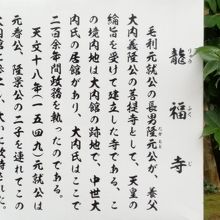 龍福寺
りゅうふくじ
毛利元就公の長男隆元公が、養父
たかもと
大内義隆公の菩提寺として、天皇の
綸旨を受けて建立した寺である。こ
の境内地は大内館の跡地で、中世大
内氏の居館があり、大内氏はここで
二百余年間政務を執ったのである。
天文十八年(一五四九)元就公は
元春公、隆景公の二子を連れてこの